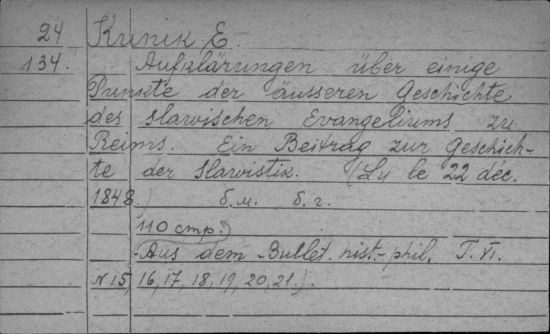 24 Kunik E.
134. Aufklärungen über einige
Punkte der äusseren Geschichte
des slawischen Evangeliums zu
Reims. Ein Beitrag zur Geschich-
te der Slawistik. (Lu le 22 déc.
1848.) б.м. б.г.
110 стр.)
Aus dem Bullet. hist.-phil. T. VI.
N 15, 16, 17, 18, 19, 20, 21.).